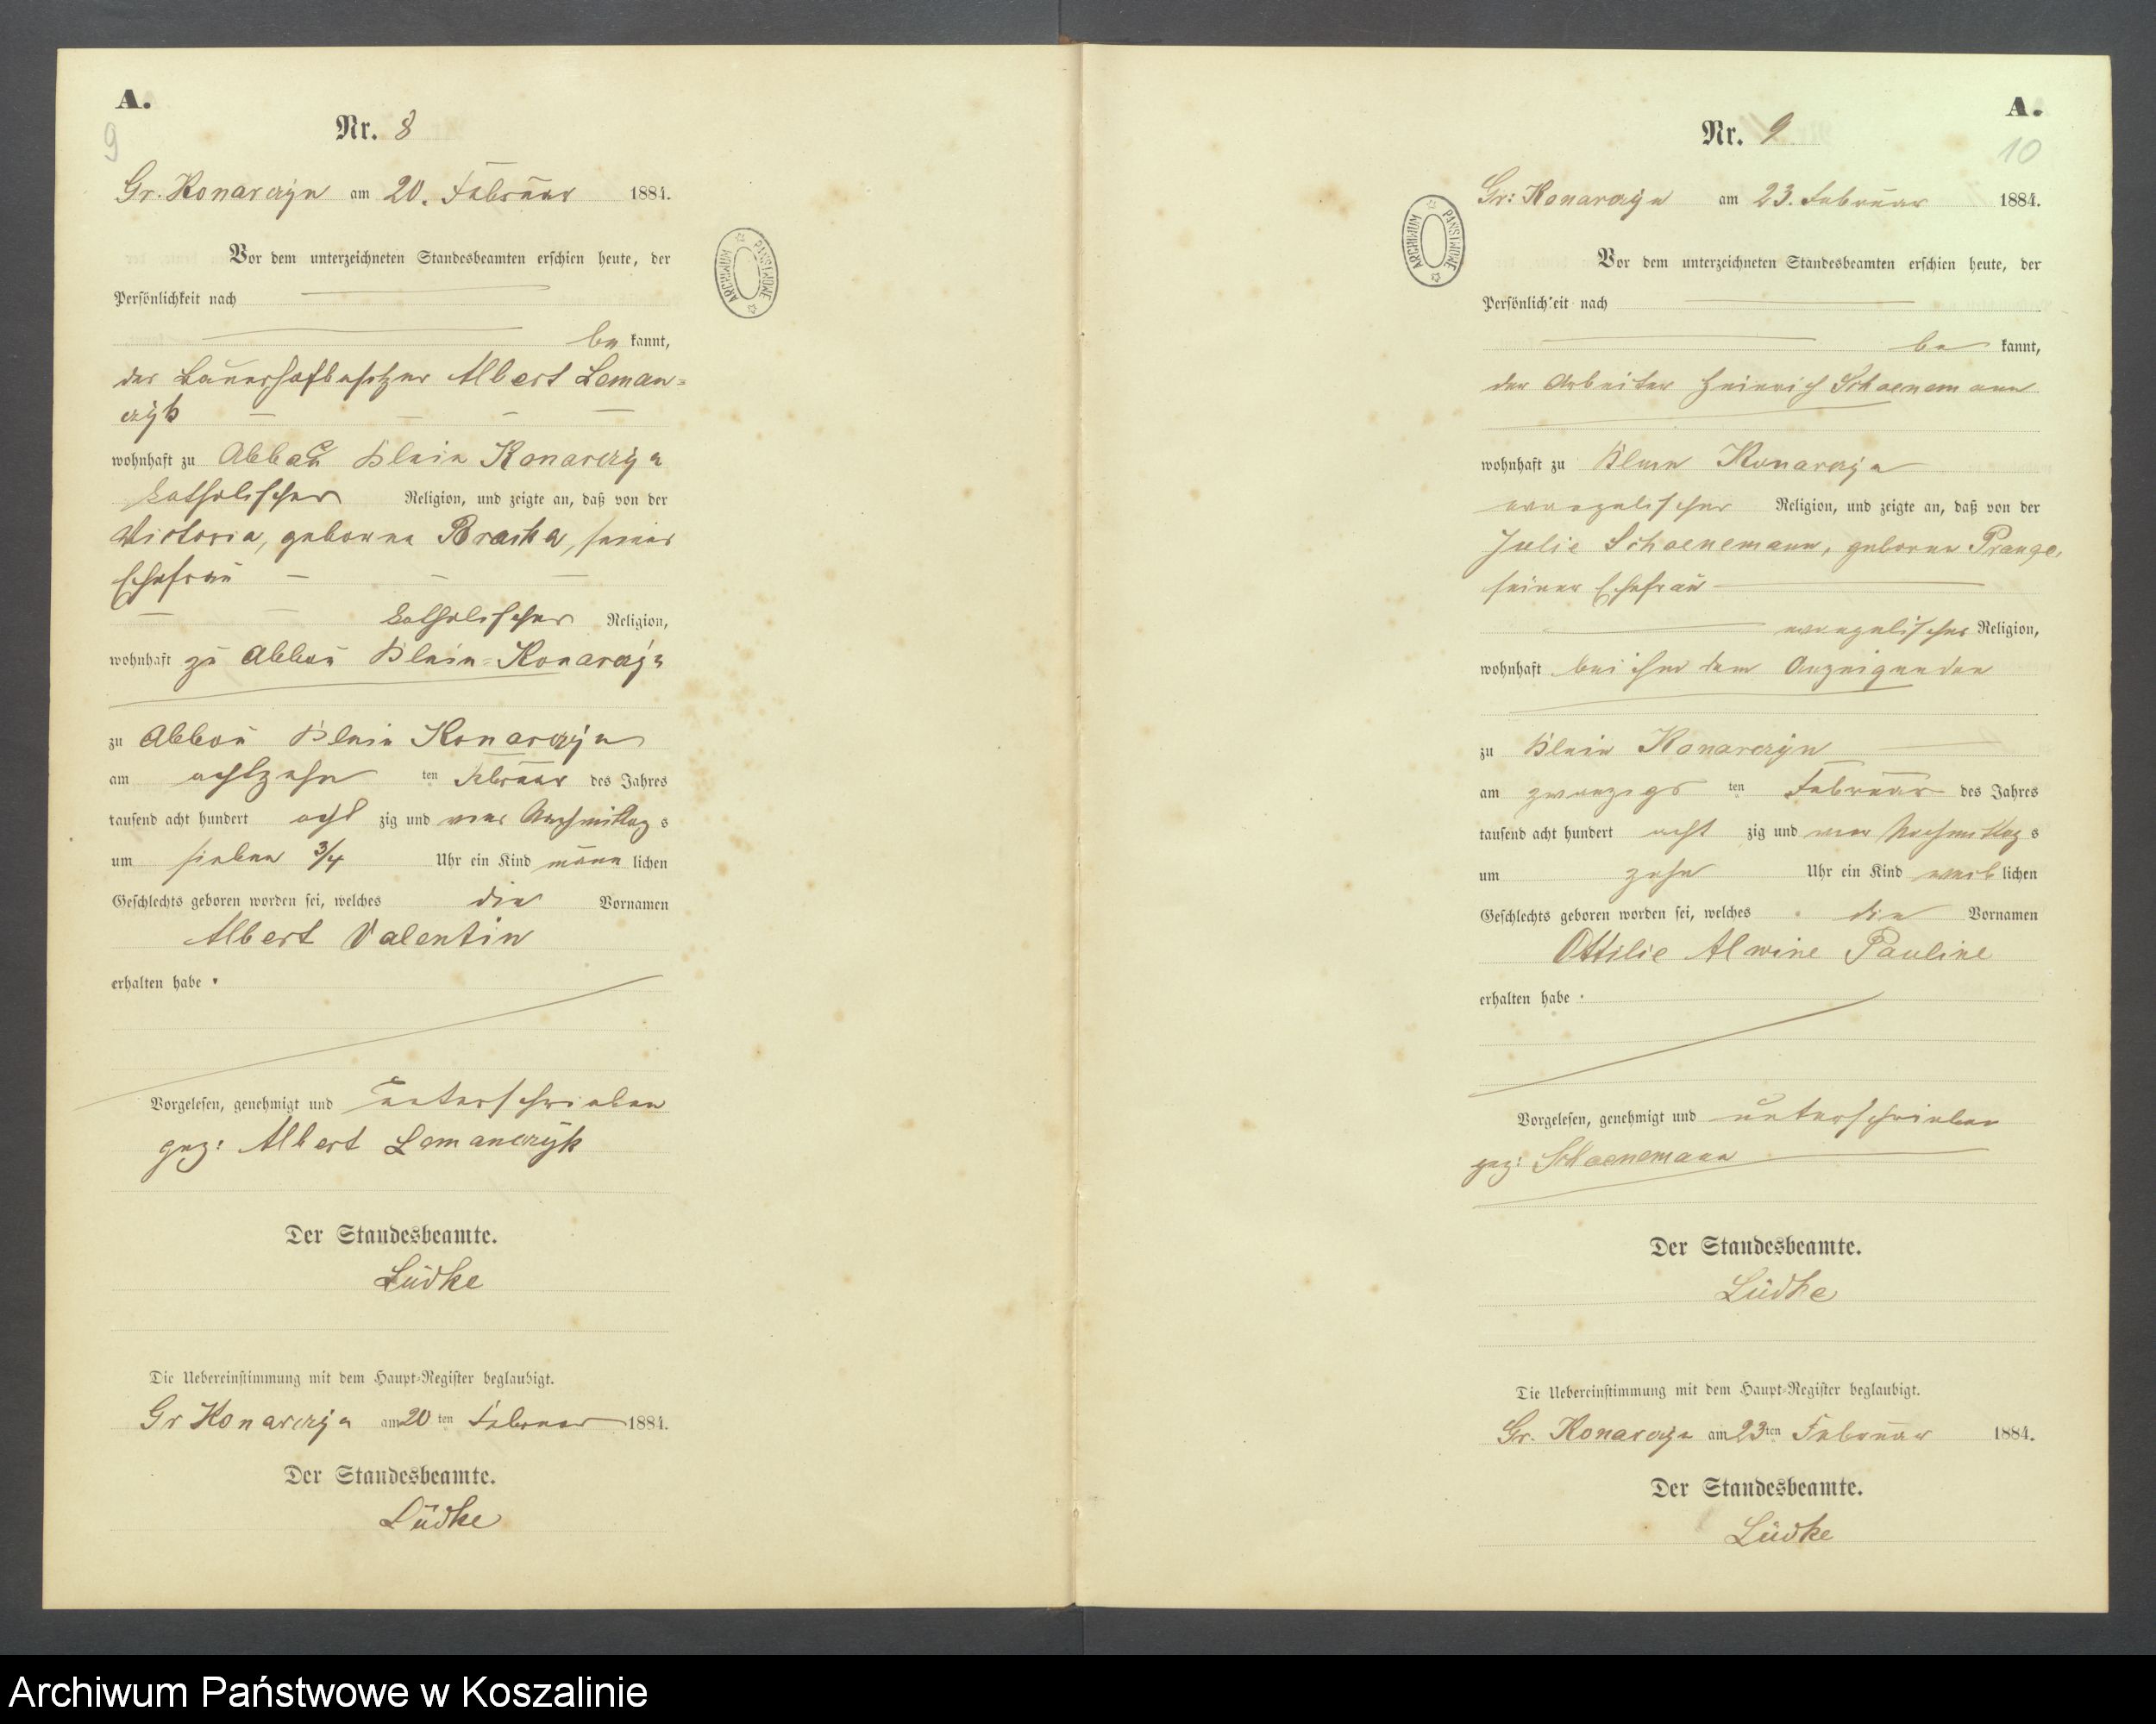 A.
9
Nr. 8
Gr. Konarczyn am 20. Februar 1884.
Vor dem unterzeichneten Standesbeamten erschien heute, der
Persönlichkeit nach
be kannt,
der Bauerhofbesitzer Albert Leman=
czyk
wohnhaft zu Abbau Klein Konarczyn
katholischer Religion, und zeigte an, daß von der
Victoria, geborne, seiner
Ehefrau
katholischer Religion,
wohnhaft zu Abbau Klein=Konarczyn
zu Abbau Klein Konarczyn
am achtzehn ten Februar des Jahres
tausend acht hundert acht zig und vier Nachmittag s
um sieben 3/4 Uhr ein Kind männ lichen
Geschlechts geboren worden sei, welches die Vornamen
Albert Valentin
erhalten habe.
Vorgelesen, genehmigt und unterschrieben
gez: Albert Lemanczyk
Der Standesbeamte.
Lüdke
Die Uebereinstimmung mit dem Haupt-Register beglaubigt.
Gr Konarczyn am 20 ten Februar 1884.
Der Standesbeamte.
Lüdke
ARCHIWUM PAŃSTWOWE
A.
10
Nr. 9
Gr: Konarczyn am 23. Februar 1884.
Vor dem unterzeichneten Standesbeamten erschien heute, der
Persönlichkeit nach
be kannt,
der Arbeiter Heinrich Schoenemann
wohnhaft zu Klein Konarczyn
evangelischer Religion, und zeigte an, daß von der
Julie Schoenemann, geborne Prange,
seiner Ehefrau
evangelischer Religion,
wohnhaft bei ihm dem Anzeigenden
zu Klein Konarczyn
am zwanzigs ten Februar des Jahres
tausend acht hundert acht zig und vier Nachmittag s
um zehn Uhr ein Kind weib lichen
Geschlechts geboren worden sei, welches die Vornamen
Ottilie Alwine Pauline
erhalten habe.
Vorgelesen, genehmigt und unterschrieben
gez: Schoenemann
Der Standesbeamte.
Lüdke
Die Uebereinstimmung mit dem Haupt-Register beglaubigt.
Gr. Konarczyn am 23ten Februar 1884.
Der Standesbeamte.
Lüdke
ARCHIWUM PAŃSTWOWE
Archiwum Państwowe w Koszalinie